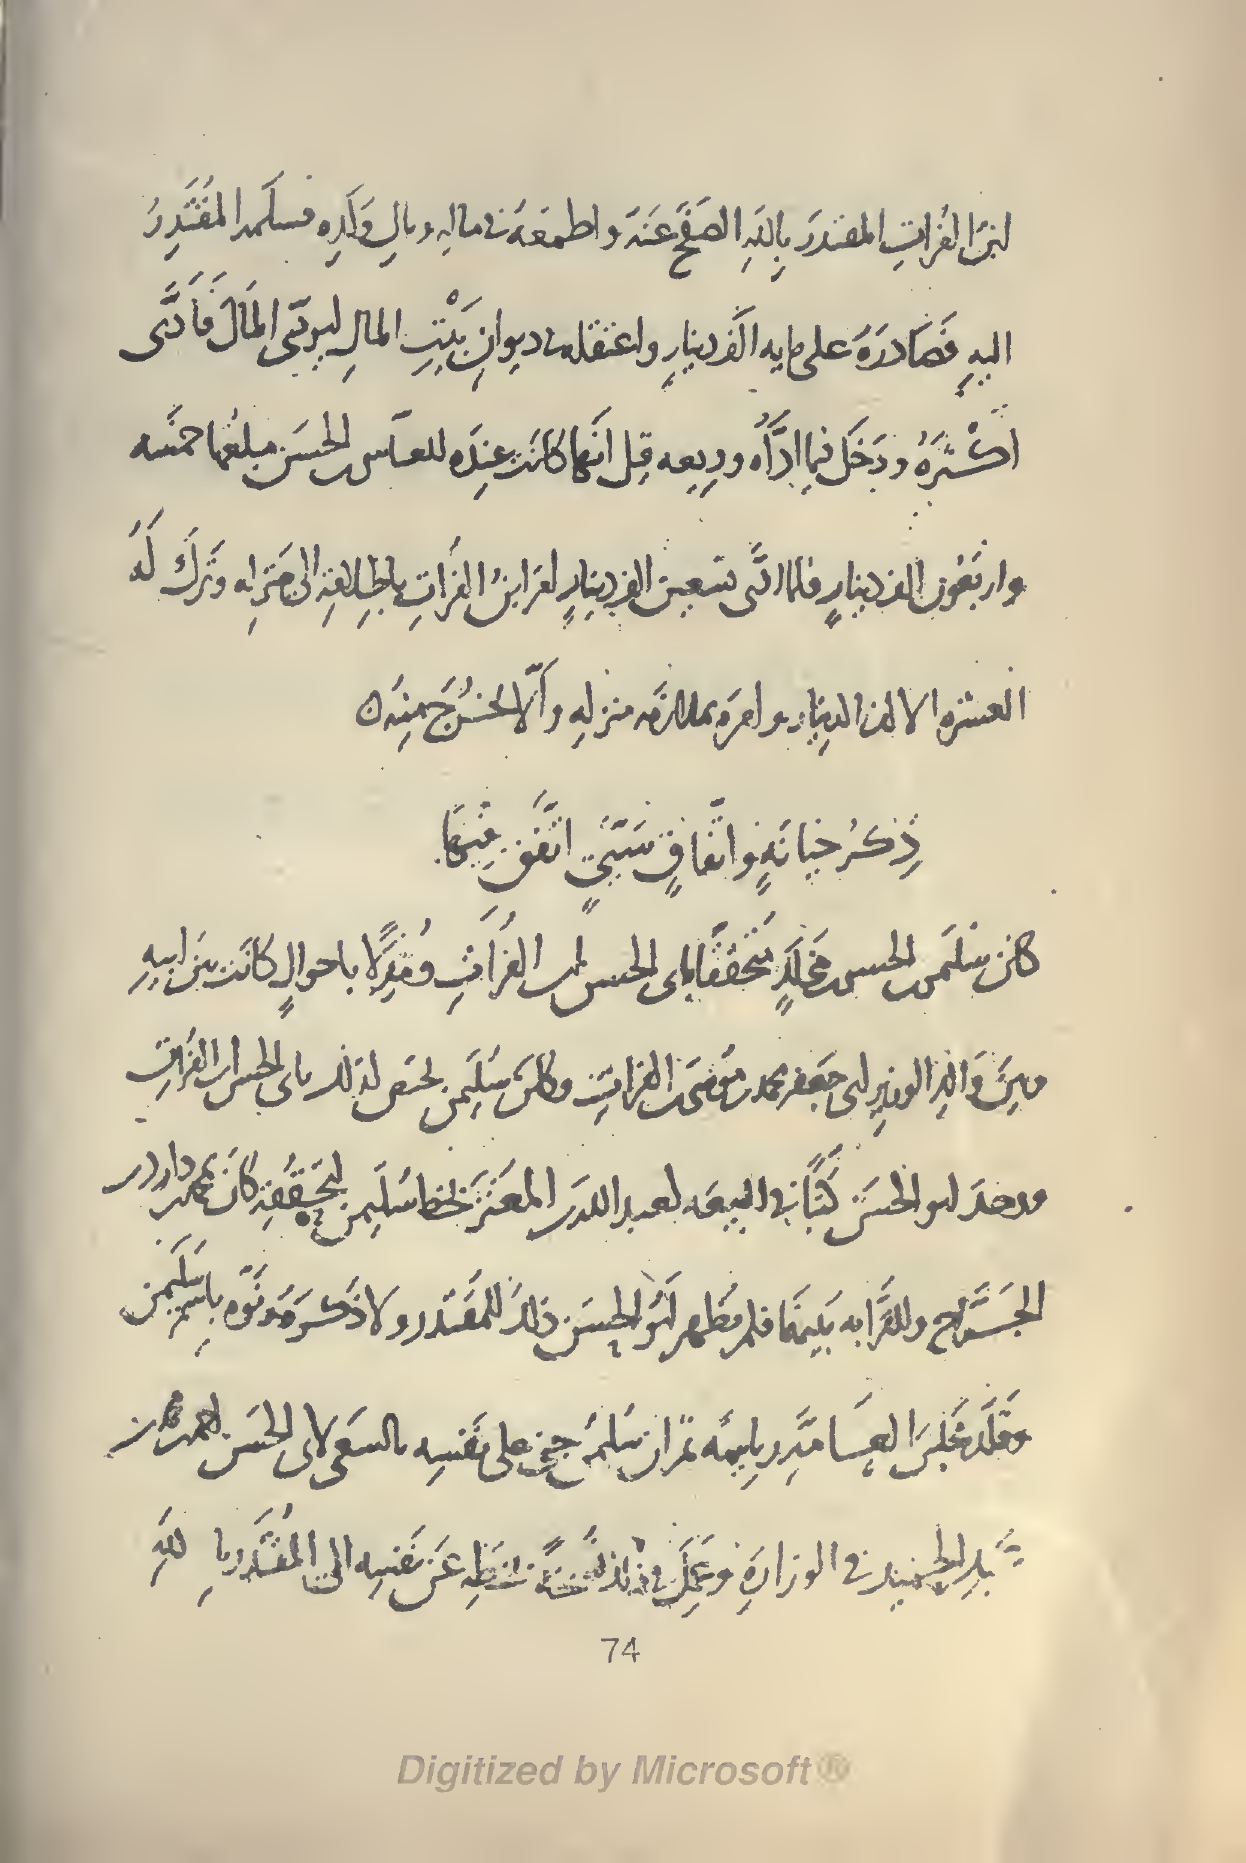 ابن الفُراتِ المقتدرَ بِاللهِ الصَفحَ عَنهُ واطمَعَهُ في مالِهِ ومالِ وَلَدِه فسلمه المُقتَدِرُ
اليهِ فَصَادَرَهُ على مايه الف دينارٍ واعتقله في ديوانِ بَيْتِ المالِ ليودّى المَالَ فَأَدَّى
اكْثَرَهُ ودَخَلَ فيما ادَّاه وديعه قيل انَّها كانت عِندَه للعبّاس بن الحسَن مبلغُها خمسَه
واربَعُون الف دينارٍ فلما ادَّى تسعين الف دينارٍ امر ابنُ الفُراتِ باطلاقِهِ الى منزله وتَركَ لَهُ
العشره الالاف الدينار وامره بملازمه منزلهِ وألّا يخرُج منهُ ن
ذِكرُ خيانَةٍ واتّفاقٍ سَيّئٍ اتّفَقَ فيها
كان سُليمَن بن الحسن بن مَخلَدٍ مُتحققًا بابى الحسن بن الفُراتِ ومُدِلًّا باحوالٍ كانَت بين ابيهِ
وبينَ وَالِدِ الوزيرِ ابى جعفر محمد بن موسَى بن الفراتِ وكان سُليمَن يختص لذلك بابى الحسن بن الفُراتِ
ووجدَ ابو الحسَن كتابًا في البيعَه لعبد الله بن المعتَزّ بخط سُليمَن لتحَقُّقهِ كانَ بمحمد بن داود بن
الجَرَّاح وللقَرابه بَينهُما فلم يُظهر ابُو الحسَن ذلكَ للمقتَدر ولا ذكرَهُ ونَوَّه باِسم سُليمن
وقلَّده مَجلِسَ العامّه رياسَه ثم ان سُليمن جنى على نَفسِه بالسَعى لابى الحسن احمد بن محمد بن
عبد الحميد في الوزارَةِ وعَمِلَ في ذلك نُسخَةً بخَطِّه عَن نَفسِه الى المُقتَدر باللهِ
74
Digitized by Microsoft®